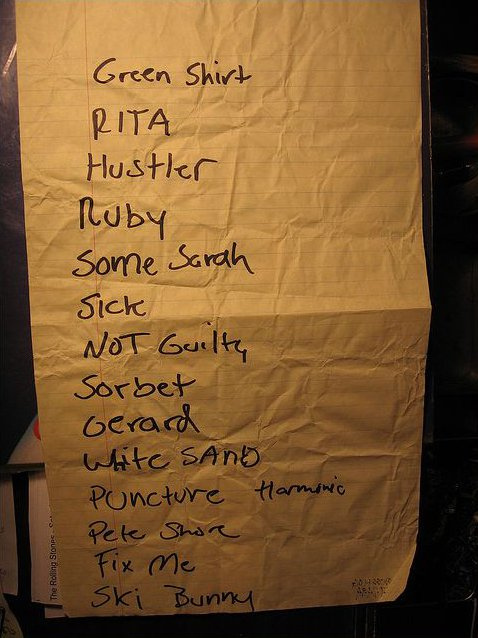 Green Shirt
RITA
Hustler
Ruby
Some Sarah
Sick
NOT Guilty
Sorbet
Gerard
White SAND
PUNCTURE Harmonic
Pete Shore
Fix Me
Ski Bunny
The Rolling Stones